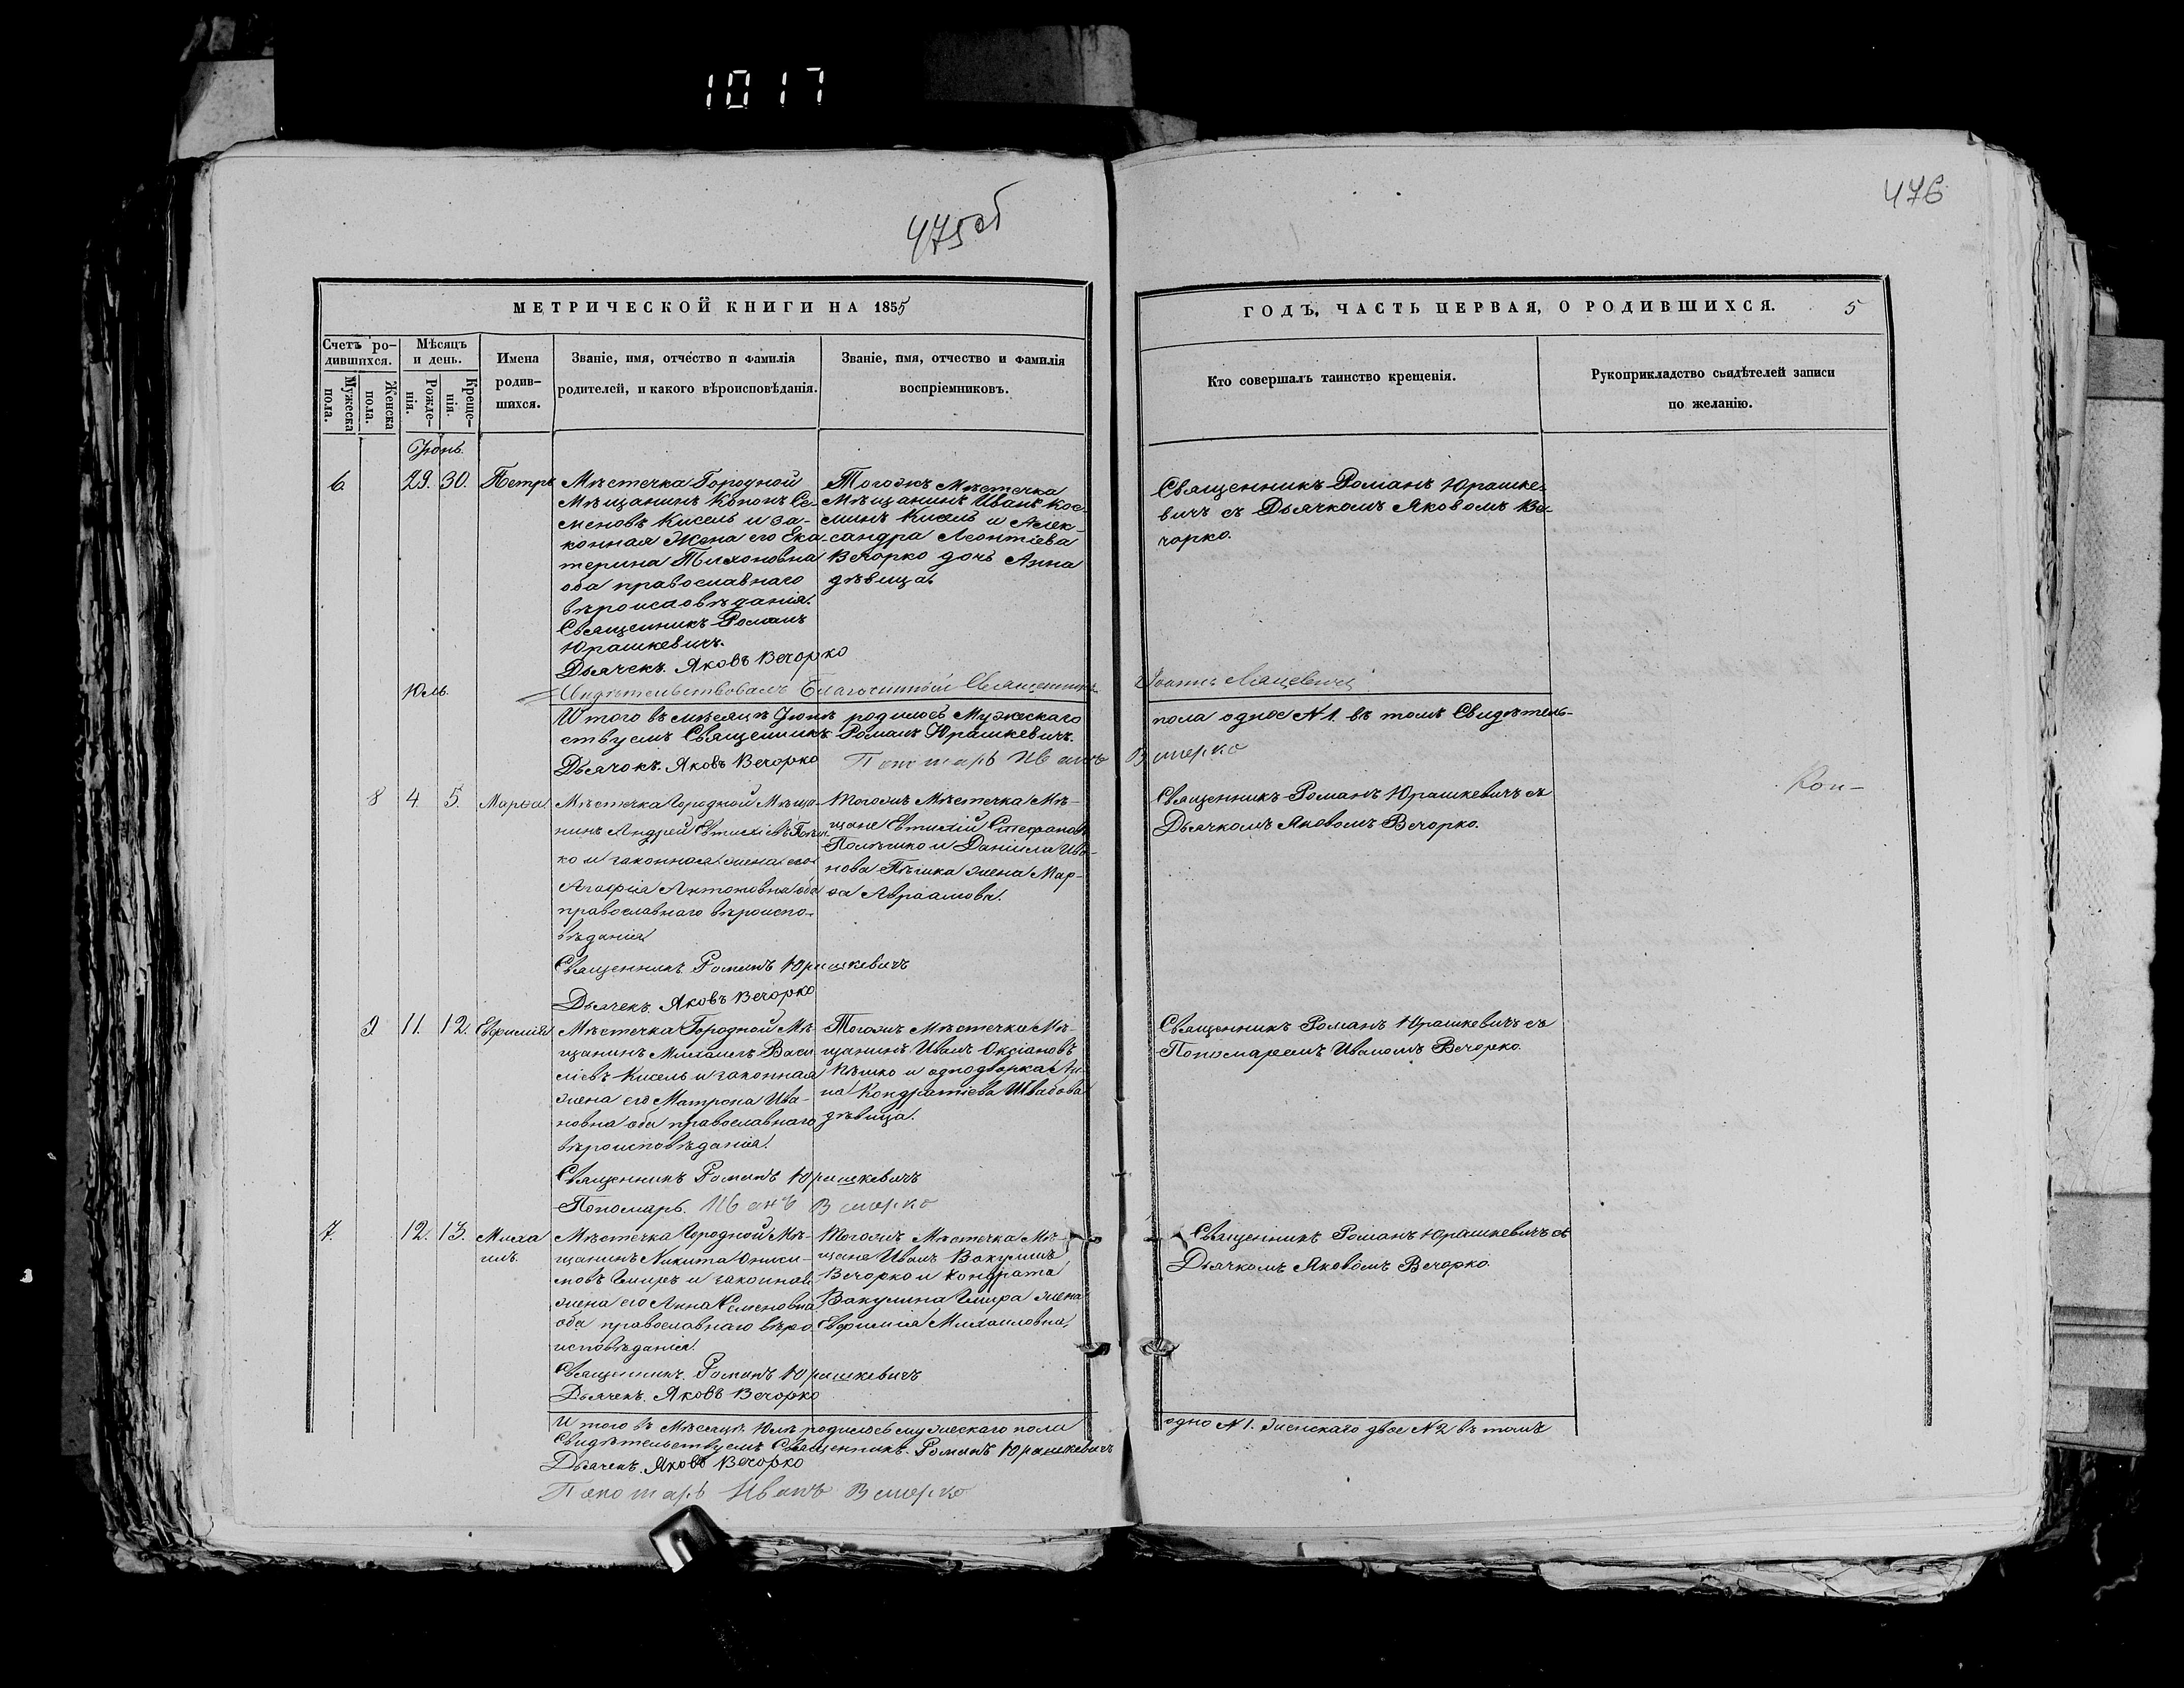 1017
475об
476
МЕТРИЧЕСКОЙ КНИГИ НА 1855
Счетъ ро-
дившихся.
Мужеска
пола.
Женска
пола.
Мѣсяцъ
и день.
Рожде-
нія.
Креще-
нія.
Имена
родив-
шихся.
Званіе, имя, отчество и фамилія
родителей, и какого вѣроисповѣданія.
Званіе, имя, отчество и фамилія
воспріемниковъ.
ГОДЪ, ЧАСТЬ ПЕРВАЯ, О РОДИВШИХСЯ. 5
Кто совершалъ таинство крещенія.
Рукоприкладство свидѣтелей записи
по желанію.
Іюнь.
6 29. 30. Петръ
Мѣстечка Городной
Мѣщанинъ Кононъ Се-
меновъ Кисель и за-
конная Жена его Ека-
терина Тихоновна
оба православнаго
вѣроисповѣданія.
Священникъ Романъ
Юрашкевичъ.
Дьячекъ. Яковъ Вечорко
Тогожъ Мѣстечка
Мѣщанинъ Иванъ Кос-
минъ Кисель и Алек-
сандра Леонтіева
Вечорко дочь Анна
дѣвица.
Священникъ Романъ Юрашке-
вичъ съ Дьячкомъ Яковомъ Ве-
чорко.
Свидѣтельствовалъ Благочинный Священникъ Іоаннъ
Юль.
Итого въ мѣсяцѣ Іюнѣ родилось Мужескаго пола одное N 1. въ томъ Свидѣтель-
ствуемъ Священникъ Романъ Юрашкевичъ.
Дьячокъ. Яковъ Вечорко Пономарь Иванъ Вечорко
8 4 5. Марѳа
Мѣстечка Городной Мѣща-
нинъ Андрей Евтихіевъ
ко и законная жена его
Агафія Антоновна оба
православнаго вѣроиспо-
вѣданія
Священникъ Романъ Юрашкевичъ
Дьячекъ. Яковъ Вечорко
Тогожъ Мѣстечка Мѣ-
щане Евтихій Стефановъ
и Даніила Ива-
нова Пѣшка жена Мар-
ѳа Авраамова.
Священникъ Романъ Юрашкевичъ съ
Дьячкомъ Яковомъ Вечорко.
Кон-
9 11. 12. Евфимія
Мѣстечка Городной Мѣ-
щанинъ Михаилъ Васи
ліевъ Кисель и законная
жена его Матрона Ива-
новна оба православнаго
вѣроисповѣданія.
Священникъ Романъ Юрашкевичъ
Пономарь. Иванъ Вечорко
Тогожъ Мѣстечка Мѣ-
щанинъ Иванъ
Пѣшко и однодворка Ан-
на Кондратіева Швабова
дѣвица.
Священникъ Романъ Юрашкевичъ съ
Пономаремъ Иваномъ Вечорко.
7. 12. 13. Миха
илъ.
Мѣстечка Городной Мѣ-
щанинъ Никита Ониси-
мовъ и законная
жена его Анна Семеновна
оба православнаго вѣро
исповѣданія.
Священникъ. Романъ Юрашкевичъ
Дьячекъ. Яковъ Вечорко
Тогожъ Мѣстечка Мѣ-
щане Иванъ Вакулинъ
Вечорко и Кондрата
Вакулина жена
Евфимія Михаиловна.
Священникъ Романъ Юрашкевичъ съ
Дьячкомъ Яковомъ Вечорко.
Итого въ Мѣсяцѣ Юлѣ родилось мужескаго пола одно N 1. женскаго двое N 2 въ томъ
Свидѣтельствуемъ Священникъ. Романъ Юрашкевичъ
Дьячекъ. Яковъ Вечорко
Пономарь Иванъ Вечорко